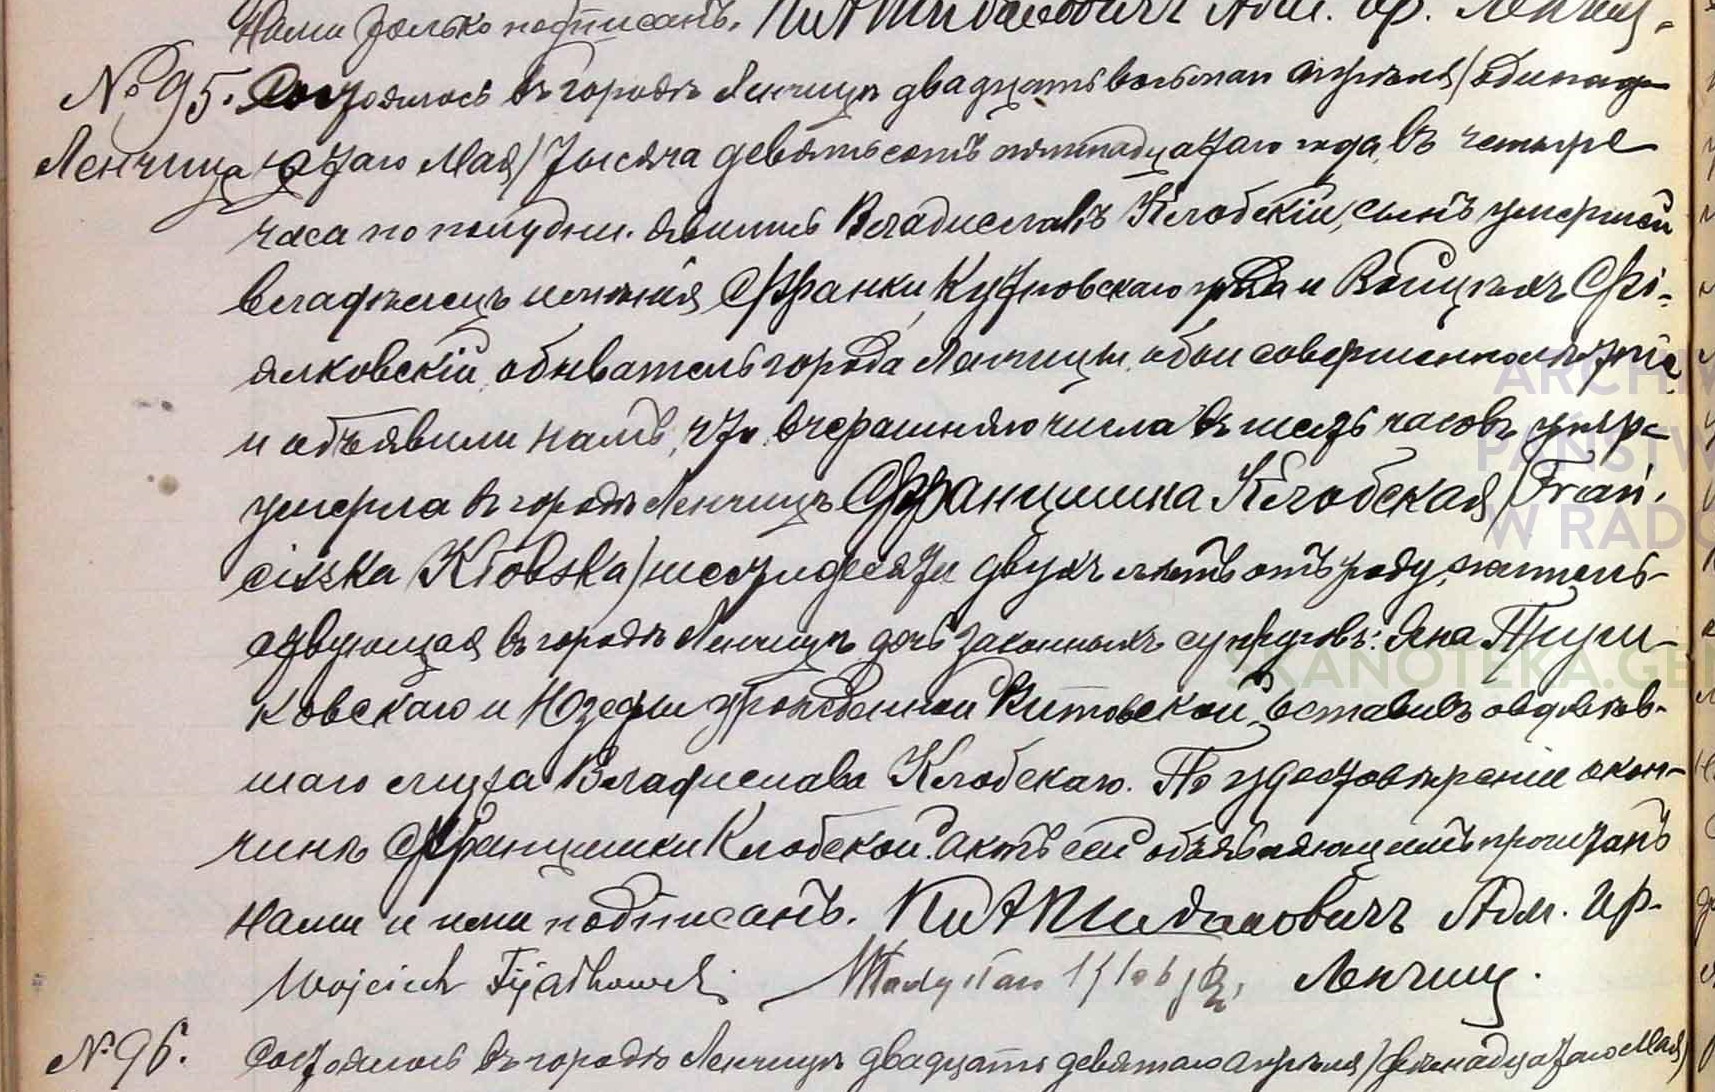 Нами только подписанъ.
№ 95. Состоялось въ городѣ Ленчицѣ двадцать восьмаго апрѣля / одинад-
Ленчица цатаго Мая / тысяча девятьсотъ пятнадцатаго года, въ четыре
часа по полудни. Явились Владиславъ Клобскій, сынъ умершей
владѣлецъ имѣнія Франки, Кутновскаго уѣзда и Войцѣхъ Фі-
ялковскій, обыватель города Ленчицы, обои совершеннолѣтніе
и объявили намъ, что вчерашняго числа въ шесть часовъ утра
умерла въ городѣ Ленчицѣ Францишка Клобская / Fran-
ciszka Kłobska / шестидесяти двухъ лѣтъ отъ роду, житель-
ствующая въ городѣ Ленчицѣ дочь законныхъ супруговъ: Яна
ковскаго и Юзефы урожденной Витовской, оставивъ овдовѣв-
шаго мужа Владислава Клобскаго. По удостовѣреніи о кон-
чинѣ Францишки Клобской. Актъ сей объявляющимъ прочитанъ
Нами и ими подписанъ. Адм. пр.
Wojciech Fijałkowski Władysław Kłobski Ленчиц.
№ 96. Состоялось въ городѣ Ленчицѣ двадцать девятаго апрѣля / двѣнадцатаго Мая /
ARCHIW
PAŃSTW
W RADO
SKANOTEKA.GE